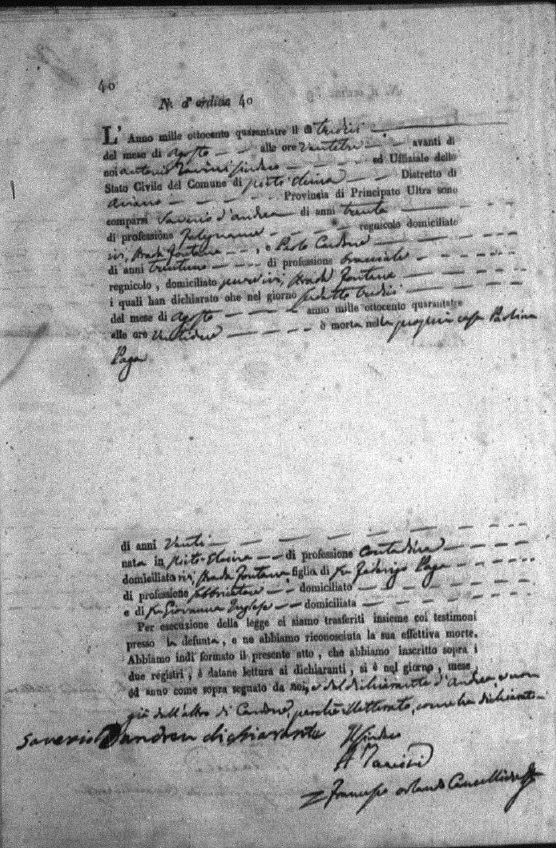 40
N. d'ordine 40
L'Anno mille ottocento quarantatre il dì tredici
del mese di Agosto alle ore ventitre avanti di
noi Antonio Sindaco ed Uffiziale dello
Stato Civile del Comune di Distretto di
Ariano Provincia di Principato Ultra sono
comparsi Saverio d'Andrea di anni trenta
di professione Falegname regnicolo domiciliato
ivi, strada Fontana, e Paolo Cardone
di anni trentuno di professione bracciale
regnicolo, domiciliato pure ivi, strada Fontana
i quali han dichiarato che nel giorno suddetto tredici
del mese di Agosto anno mille ottocento quarantatre
alle ore ventidue è morta nella propria casa Paolina
Paga
di anni Venti
nata in di professione contadina
domiciliata ivi, strada Fontana figlia di fu Federigo Paga
di professione domiciliato
e di fu Giovanna domiciliata
Per esecuzione della legge ci siamo trasferiti insieme coi testimoni
presso la defunta, e ne abbiamo riconosciuta la sua effettiva morte.
Abbiamo indi formato il presente atto, che abbiamo inscritto sopra i
due registri, e datane lettura ai dichiaranti, si è nel giorno, mese
ed anno come sopra segnato da noi, e dal dichiarante d'Andrea, e non
già dall'altro di Cardone, perchè illetterato, come ha dichiarato
Saverio Dandrea dichiarante Il Sindaco
Francesco Orlando Cancelliere